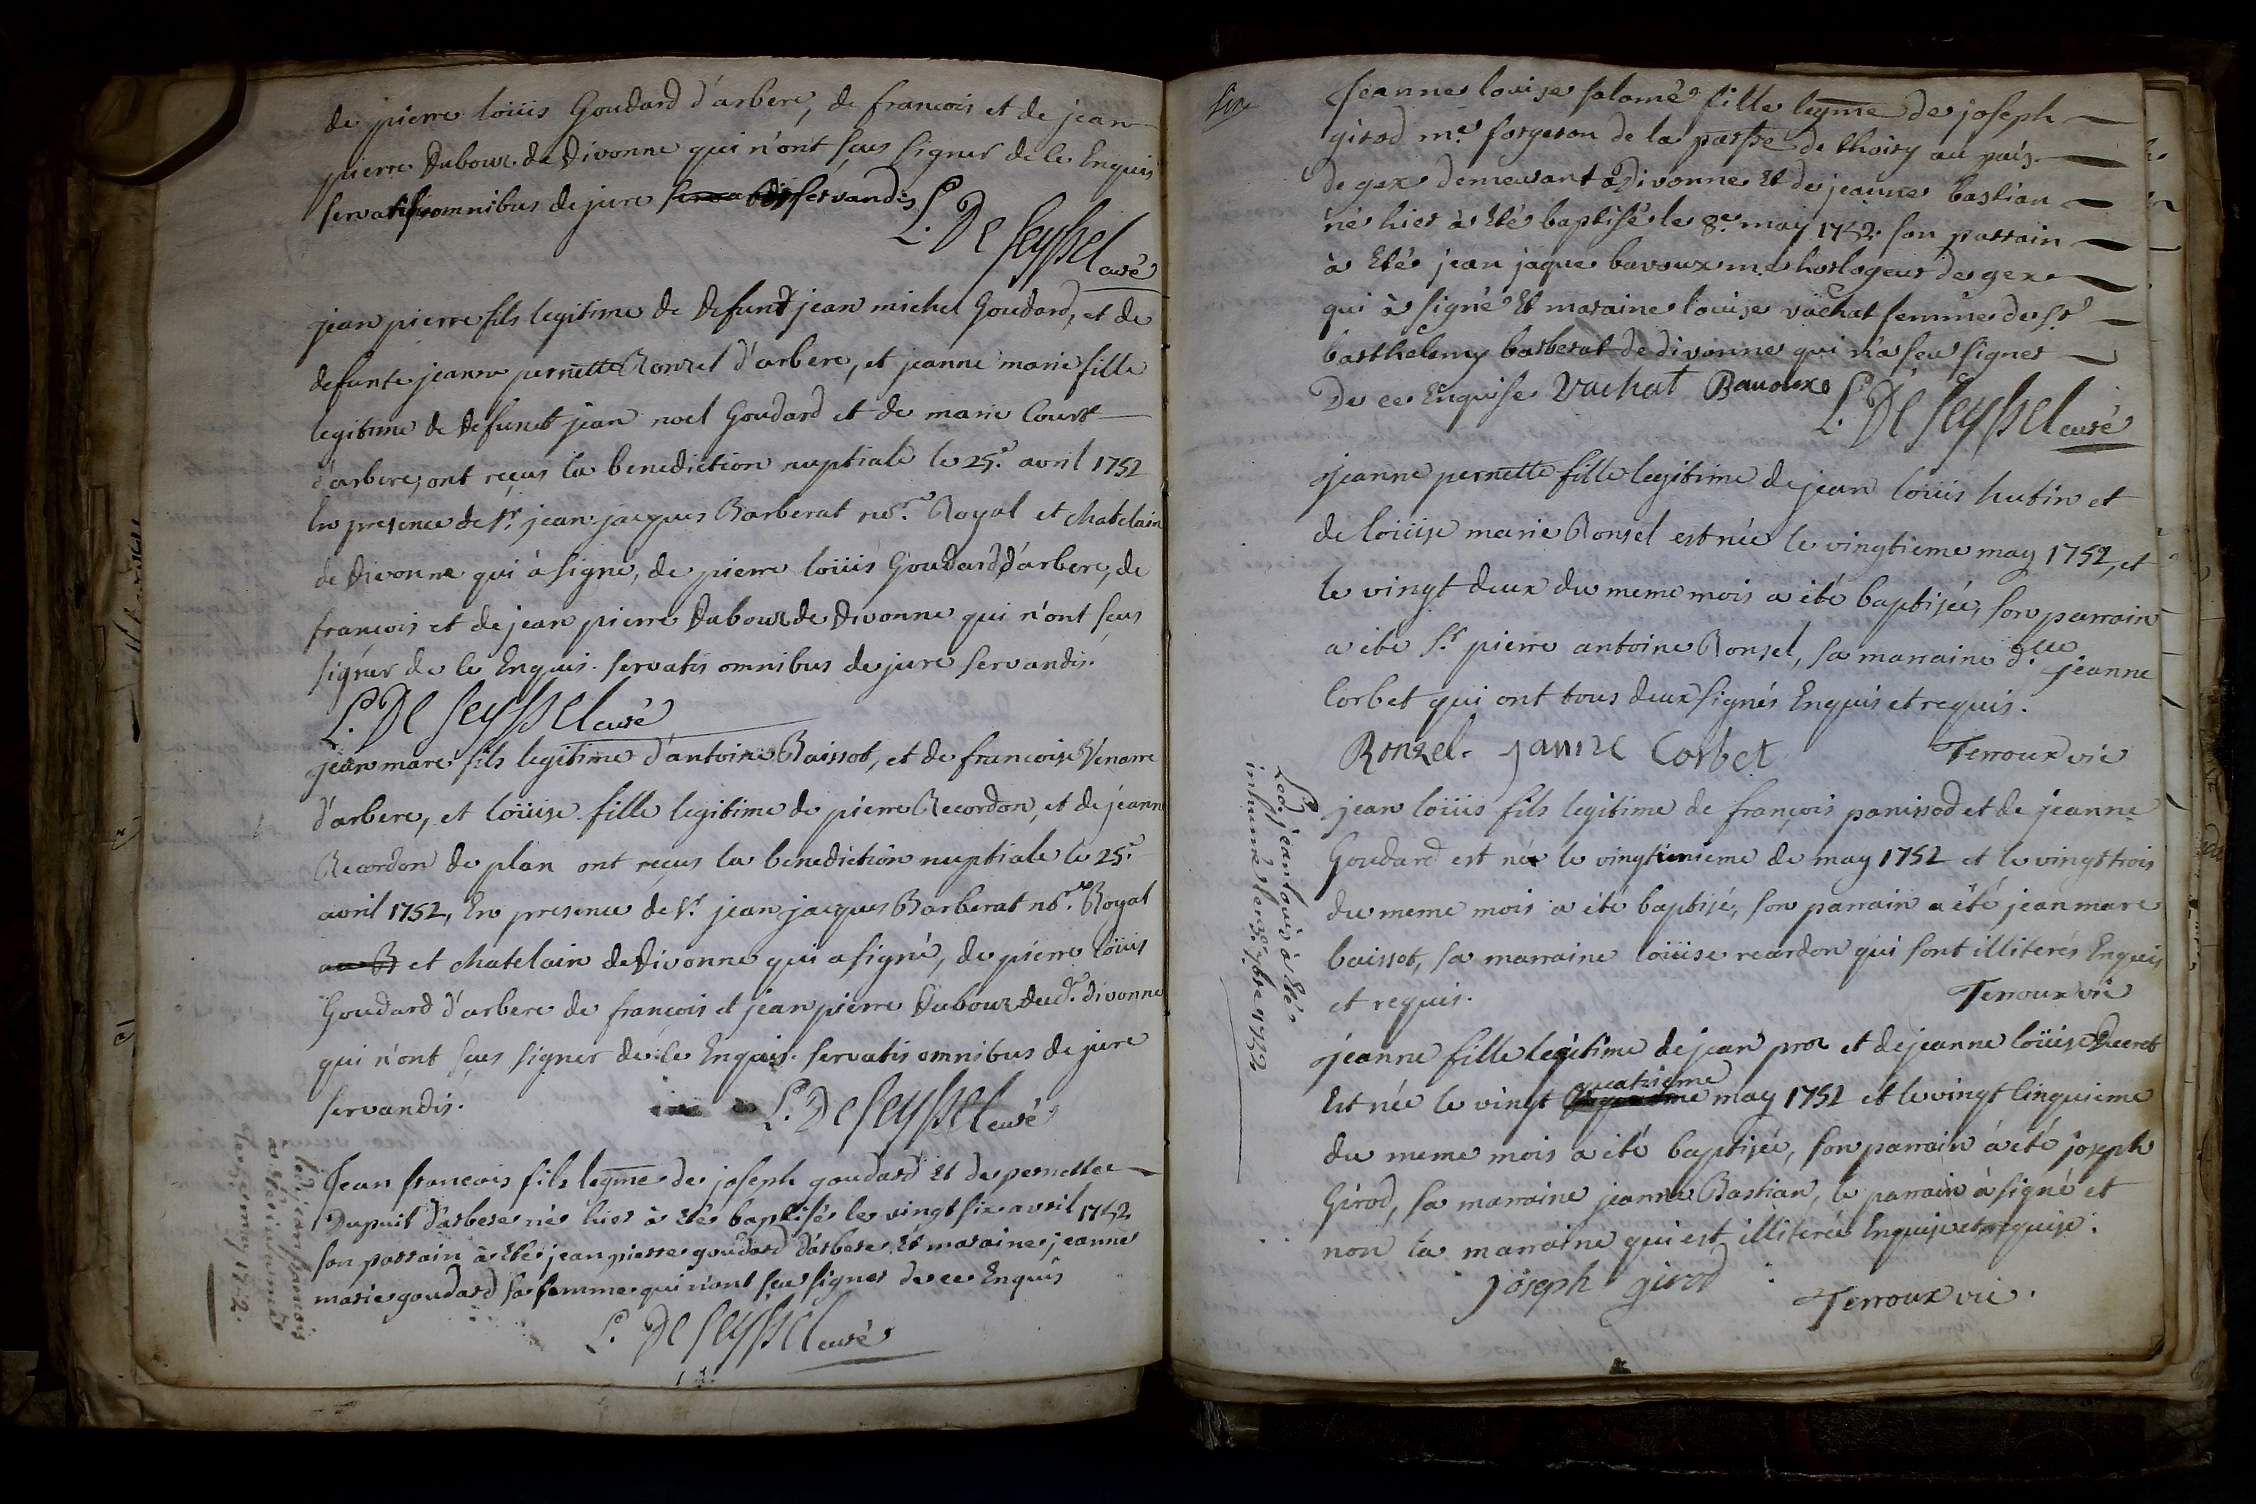 de pierre loüis Goudard d'arbere, de francois et de jean
pierre Dubouz de Divonne qui n'ont sçus signer de ce Enquis
servatis omnibus de jure servandis
L. De Seyssel curé
jean pierre fils legitime de Defunct jean michel Goudard, et de
defunte jeanne pernette Ronzel d'arbere, et jeanne marie fille
legitime de Defunct jean noel Goudard et de marie Court
d'arbere, ont reçus la benediction nuptiale le 25.e avril 1752
En presence de Sr. jean jacques Barberat no.re Royal et chatelain
de Divonne qui à signé, de pierre loüis Goudard d'arbere, de
francois et de jean pierre Dubouz de Divonne qui n'ont sçus
signer de ce Enquis. servatis omnibus de jure servandis.
L. De Seyssel curé
jean marc fils legitime d'antoine Baissot, et de francoise Venarre
d'arbere, et loüise fille legitime de pierre Recordon, et de jeanne
Recordon de plan ont reçus la benediction nuptiale le 25.e
avril 1752, En presence de Sr. jean jacques Barberat no.re Royal
et chatelain de Divonne qui a signé, de pierre loüis
Goudard d'arbere de françois et jean pierre Dubouz dud.t divonne
qui n'ont sçus signer de ce Enquis. servatis omnibus de jure
servandis.
L. De Seyssel curé
Jean francois fils legme de joseph goudard Et de pernette
Dupuit d'arbere né hier à Eté baptisé le vingt six avril 1752
son parrain à Eté jean pierre goudard d'arbere, Et maraine jeanne
marie goudard sa femme qui n'ont sçu signer de ce Enquis
L. De Seyssel curé
led. jean francois
à Eté inhumé
may 1752.
Jeanne louise salomé fille legme de joseph
girod me. forgeron de la parsse de thoiry au païs
de gex demeurant à Divonne Et de jeanne bastian
né hier à Eté baptisé le 8.e may 1752. son parrain
à Eté jean jaque bavoux me horlogeur de gex
qui à signé Et maraine louise vachat femme de Sr
barthelemy barberat de divonne qui n'a sçu signer
De ce Enquise Vachat Bauoux
L. De Seyssel curé
Jeanne pernette fille legitime de jean loüis hutin et
de loüise marie Ronsel est née le vingtieme may 1752, et
le vingt deux du meme mois a été baptisée, son parrain
a été Sr. pierre antoine Ronsel, sa marraine d.lle jeanne
Corbet qui ont tous deux signés Enquis et requis.
Ronzel. janne Corbet Terroux vic
jean loüis fils legitime de françois panissod et de jeanne
Goudard est né le vingtunieme de may 1752 et le vingt trois
du meme mois a été baptisé, son parrain a été jean marc
baissot, sa marraine loüise recordon qui sont illiterés Enquis
et requis.
Terroux vic
Led. jean louis à Eté
inhumé le 3.e 7bre 1752
jeanne fille legitime de jean proz et de jeanne loüise Ducret
Est née le vingt quatrieme may 1752 et le vingt Cinquieme
du meme mois a été baptisée, son parrain à été joseph
Girod, sa marraine jeanne Bastian, le parrain à signé et
non la marraine qui est illiterée Enquise et requise.
joseph girod
Terroux vic.